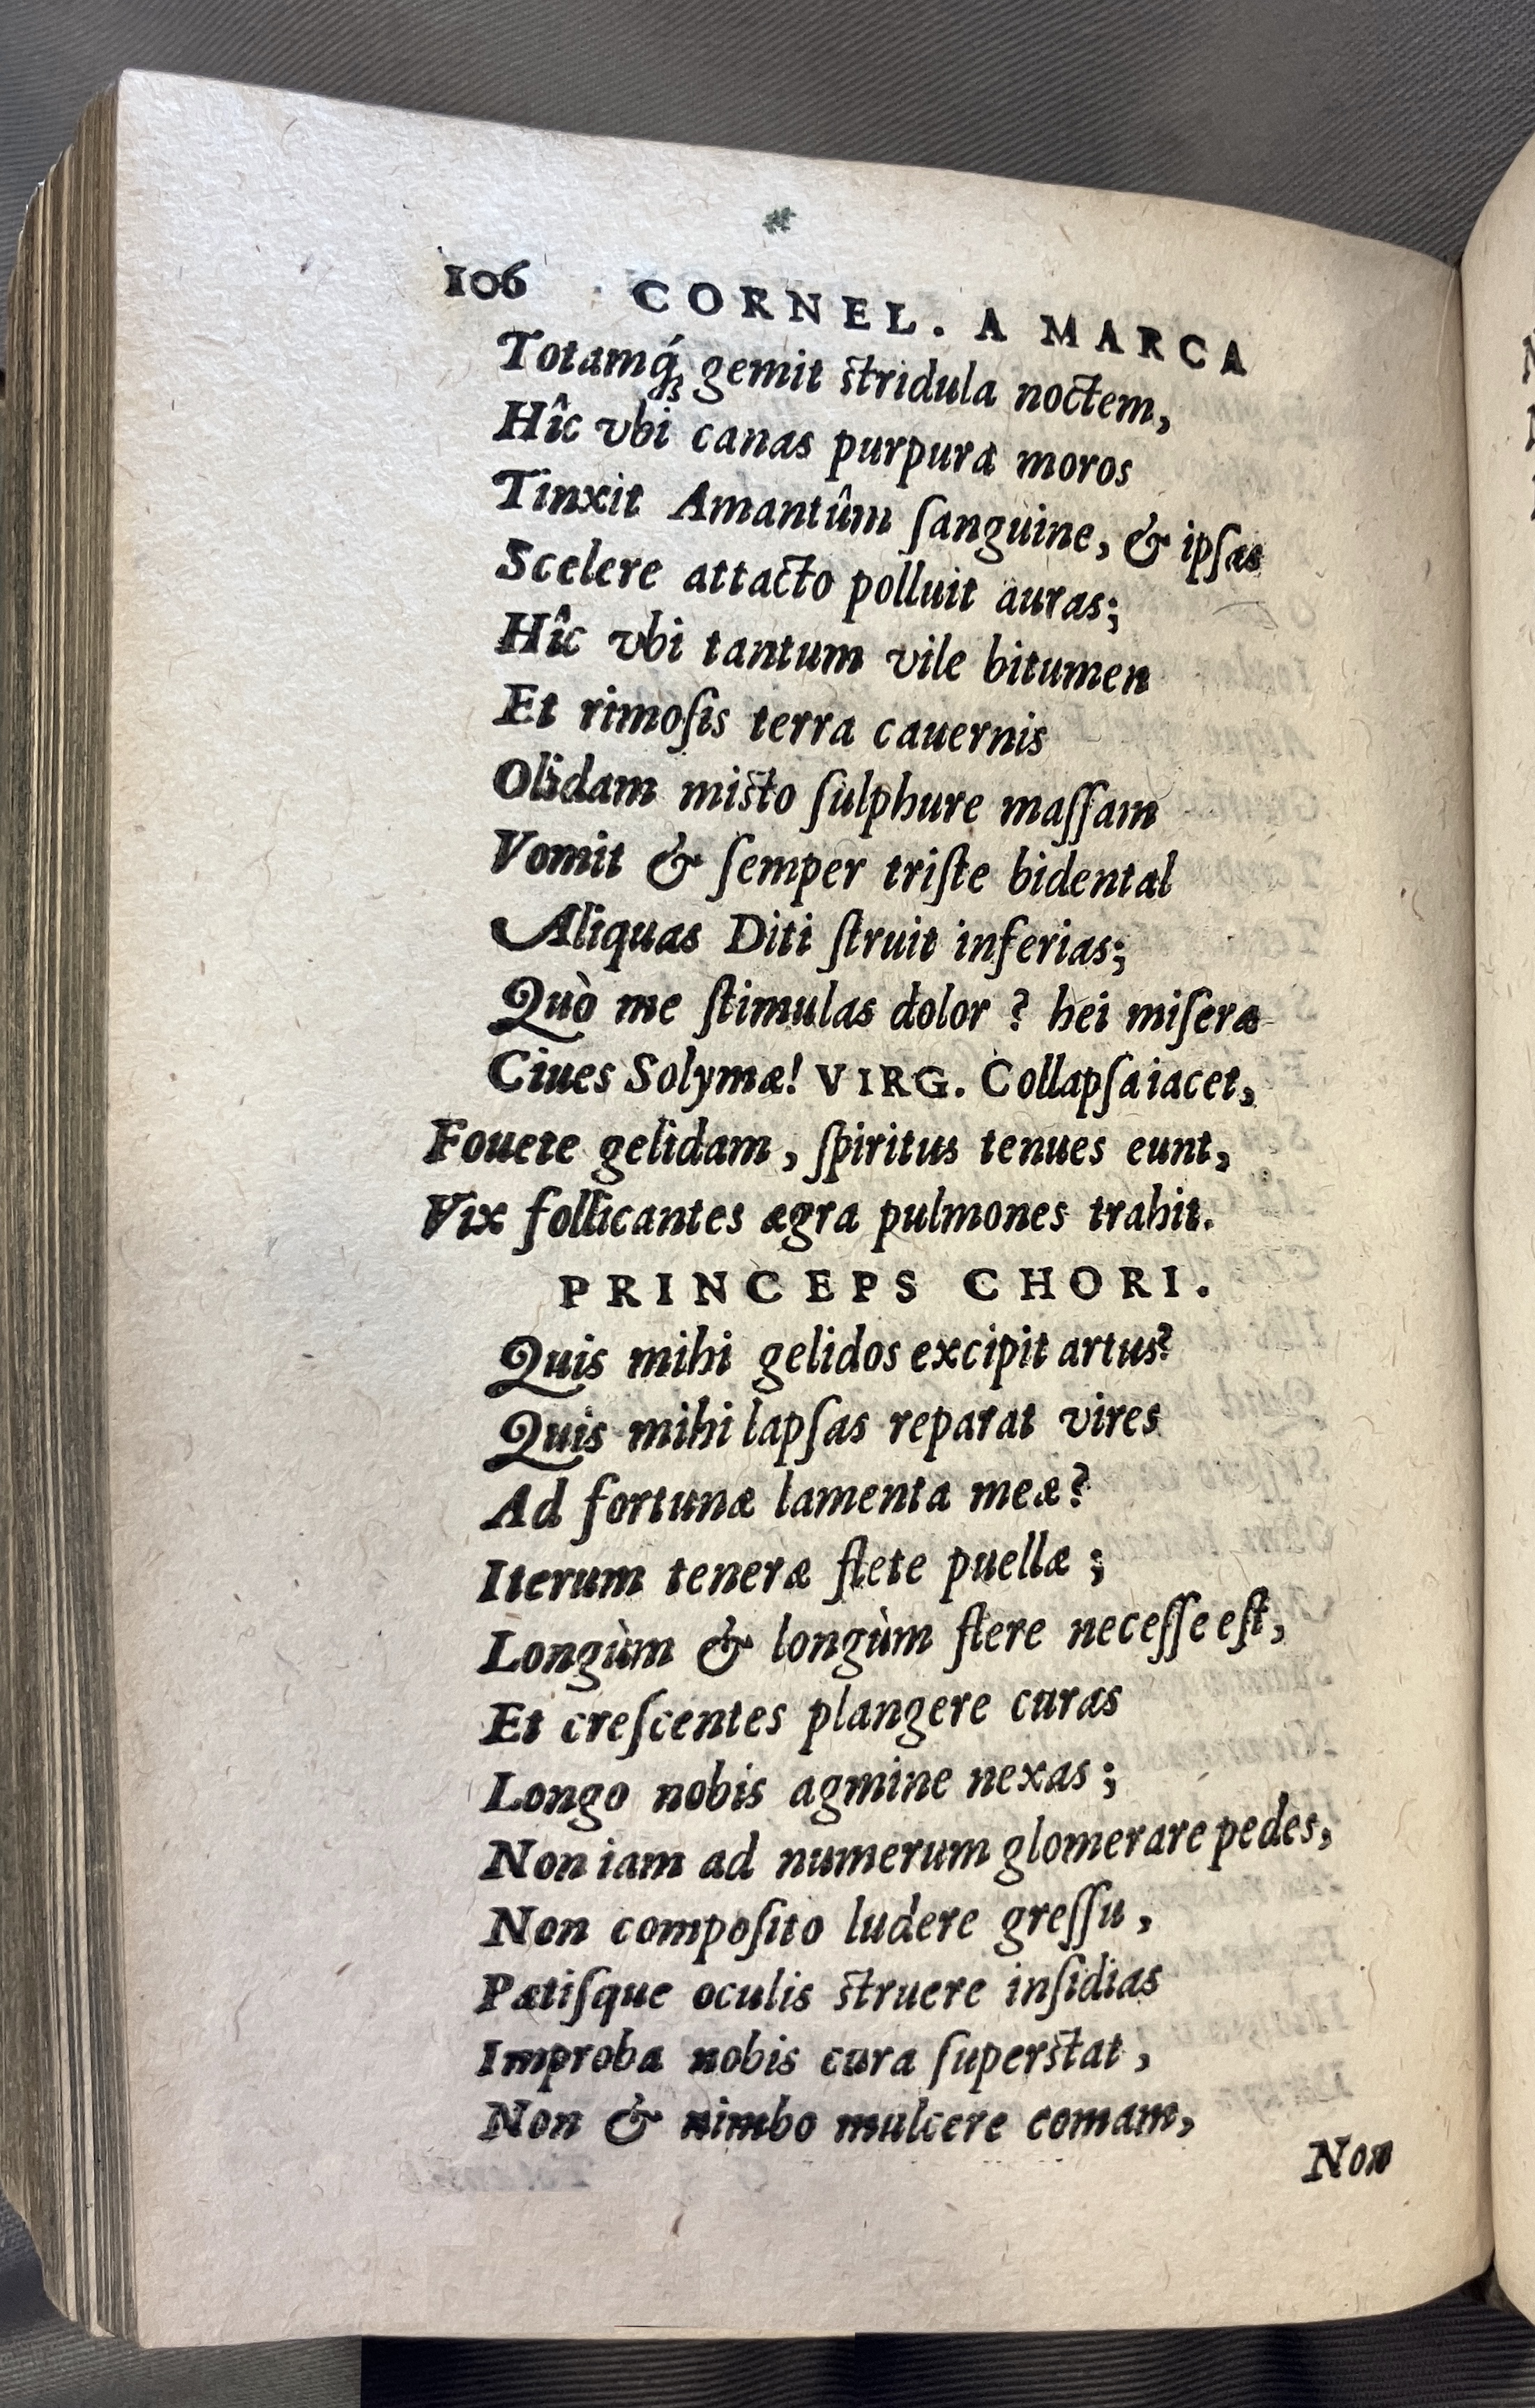 106 CORNEL. A MARCA
Totamq́ꝫ gemit ſtridula noctem,
Hîc vbi canas purpura moros
Tinxit Amantûm ſanguine, & ipſas
Scelere attacto polluit auras;
Hîc vbi tantum vile bitumen
Et rimoſis terra cauernis
Olidam miſto ſulphure maſſam
Vomit & ſemper triſte bidental
Aliquas Diti ſtruit inferias;
Quò me ſtimulas dolor? hei miſeræ
Ciues Solymæ! VIRG. Collapſa iacet,
Fouete gelidam, ſpiritus tenues eunt,
Vix follicantes ægra pulmones trahit.
PRINCEPS CHORI.
Quis mihi gelidos excipit artus?
Quis mihi lapſas reparat vires
Ad fortunæ lamenta meæ?
Iterum teneræ flete puellæ;
Longùm & longùm flere neceſſe eſt,
Et creſcentes plangere curas
Longo nobis agmine nexas;
Non iam ad numerum glomerare pedes,
Non compoſito ludere greſſu,
Pætiſque oculis ſtruere inſidias
Improba nobis cura ſuperſtat,
Non & nimbo mulcere comam,
Non